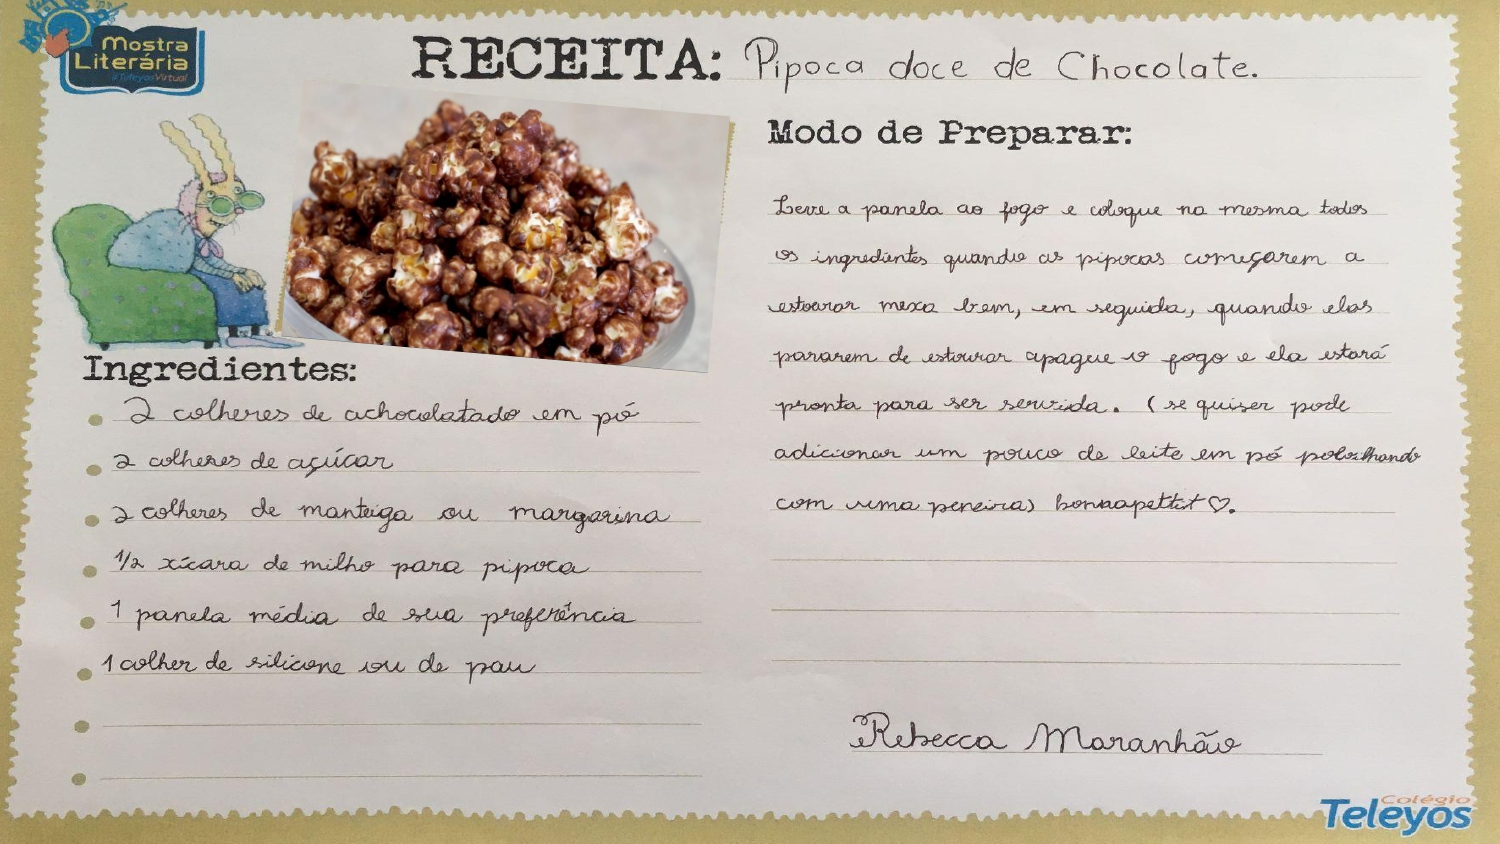 Mostra
Literária
#TeleyosVirtual
RECEITA: Pipoca doce de Chocolate.
Ingredientes:
2 colheres de achocolatado em pó
2 colheres de açúcar
2 colheres de manteiga ou margarina
1/2 xícara de milho para pipoca
1 panela média de sua preferência
1 colher de silicone ou de pau
Modo de Preparar:
Leve a panela ao fogo e coloque na mesma todos
os ingredientes quando as pipocas começarem a
estourar mexa bem, em seguida, quando elas
pararem de estourar apague o fogo e ela estará
pronta para ser servida. (se quiser pode
adicionar um pouco de leite em pó polvilhando
com uma peneira) bonnapettit ♡.
Rebecca Maranhão
Colégio
Teleyos